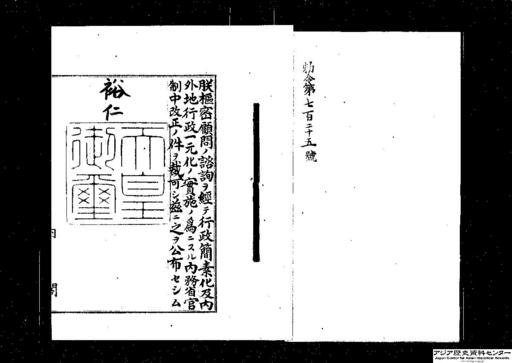 勅令第七百二十五號
朕樞密顧問ノ諮詢ヲ經テ行政簡素化及内
外地行政一元化ノ實施ノ爲ニスル内務省官
制中改正ノ件ヲ裁可シ茲ニ之ヲ公布セシム
裕仁
天皇
御璽
内閣
アジア歴史資料センター
Japan Center for Asian Historical Records